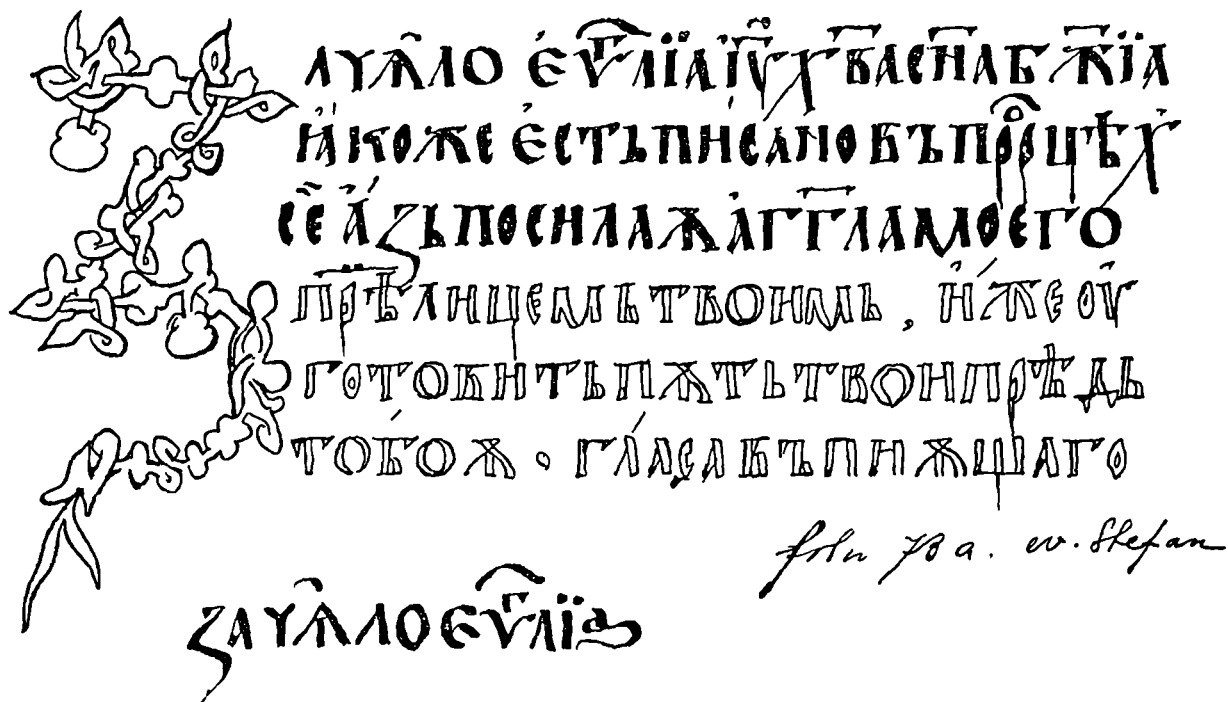 ЗАЧѦЛО Е҆Ѵⷢ҇ЛЇА І҆Ѵ҃ Х҃ВА СН҃А Б Ж҃ЇА
ꙖКОЖЕ Е҆СТЪ ПИСАНО ВЪ ПРⷪ҇РЦѢХ
СЕ А҆ЗЪ ПОСИЛАѪ А҆ГГ҃ЛА МОЕГО
ПРѢ ЛИЦЕМЪ ТВОИМЬ , И҆ЖЕ ОУ
ГОТОВИТЬ ПѪТЬ ТВОИ ПРѢДЬ
ТОБОѪ · ГЛАСА ВЪПИѪЩАГО
ev. Stefan
ЗАЧѦЛО ЕѴⷢ҇ЛЇА